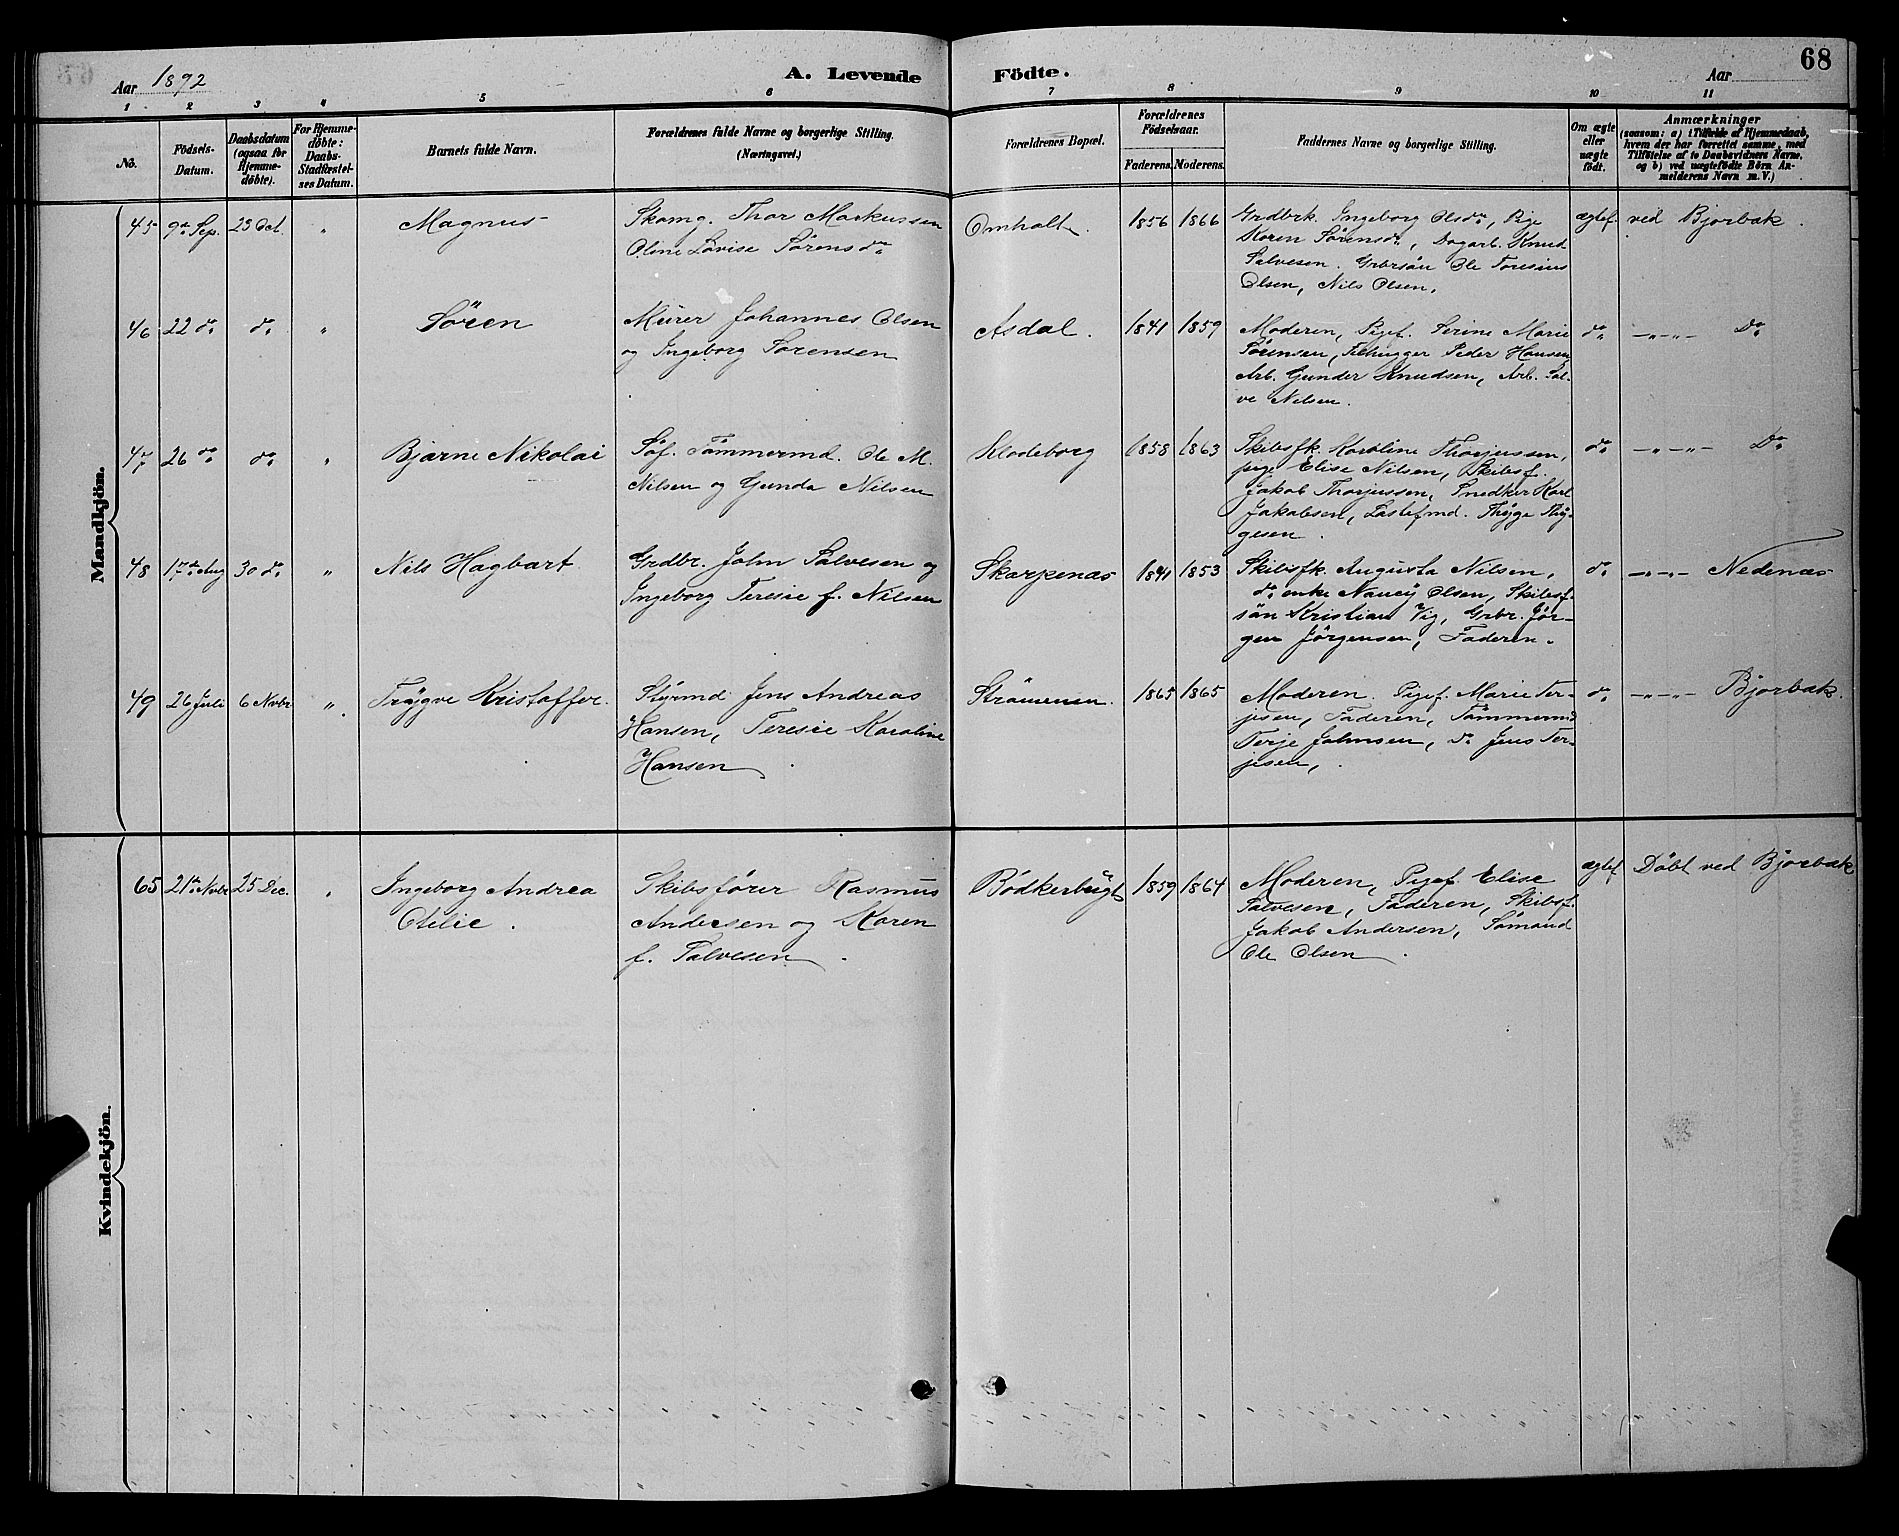 68
Aar 1892
A. Levende
Födte.
Aar
1 2 3 4 5 6 7 8 9 10 11
No.
Födsels-
Datum.
Daabsdatum
(ogsaa for
Hjemme-
döbte).
For Hjemme-
döbte:
Daabs-
Stadfæstel-
ses Datum.
Barnets fulde Navn.
Forældrenes fulde Navne og borgerlige Stilling.
(Næringsvei.)
Forældrenes Bopæl.
Forældrenes
Födselsaar.
Faderens. Moderens.
Faddernes Navne og borgerlige Stilling.
Om ægte
eller
uægte
födt.
Anmærkninger
(saasom: a) i Tilfælde af Hjemmedaab,
hvem der har forrettet samme, med
Tilföielse af to Daabsvidners Navne,
og b) ved uægtefödte Börn An-
melderens Navn m. V.)
Mandkjön.
45 9de Sep. 23 Oct. " Magnus
Skomg. Thor Markussen
Oline Lovise Sørensdr
Omholt. 1856 1866
Grdbrk. Ingeborg Olsdr, Pige
Karen Sørensdr, Dagarb. Knud
Salvesen. Grbrsön Ole Toresius
Olsen, Nils Olsen.
ægtef. ved Bjorbæk.
46 22 do do " Sören
Murer Johannes Olsen
og Ingeborg Sørensen
Asdal. 1841 1859
Moderen, Pigef. Serine Marie
Sørensen, Peder Hansen
Arb. Gunder Knudsen, Arb. Sal-
ve Nilsen.
do -"-"- Do
47 26 do do " Bjarne Nikolai
Söf. Tömmermd. Ole M.
Nilsen og Gunda Nilsen
Klodeborg 1858 1863
Skibsfk. Karoline Thorjussen,
pige Elise Nilsen, Skibsf.
Jakob Thorjussen, Snedker Karl
Jakobsen, Lastefmd. Thyge Thy-
gesen.
do -"-"- Do
48 17de Aug 30 do " Nils Hagbart
Grdbr. John Salvesen og
Ingeborg Teresie f. Nilsen
Skarpenæs 1841 1853
Skibsfk. Augusta Nilsen,
do enke Nancy Olsen, Skibsf-
sön Kristian Vig, Grbr. Jör-
gen Jörgensen, Faderen.
do -"-"- Nedenæs
49 26 Juli 6 Nvbr " Trygve Kristoffer.
Styrmd. Jens Andreas
Hansen, Teresie Karoline
Hansen
Strömmen. 1865 1865
Moderen. Pigef. Marie Ter-
jesen, Faderen, Tömmermd
Terje Johnsen, do Jens Ter-
jesen,
do -"-"- Bjorbæk.
Kvindekjön.
65 21de Nvbr 25 Dec. " Ingeborg Andrea
Otilie.
Skibsförer Rasmus
Andersen og Karen
f. Salvesen.
Bödkerbugt 1859 1864
Moderen, Pigef. Elise
Salvesen, Faderen, Skibsf.
Jakob Andersen, Sömand
Ole Olsen.
ægtef. Döbt ved Bjorbæk